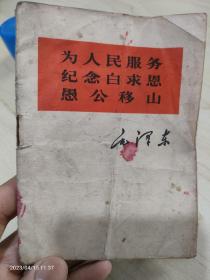 为人民服务
纪念白求恩
愚公移山
毛泽东
2023/04/15 11:57